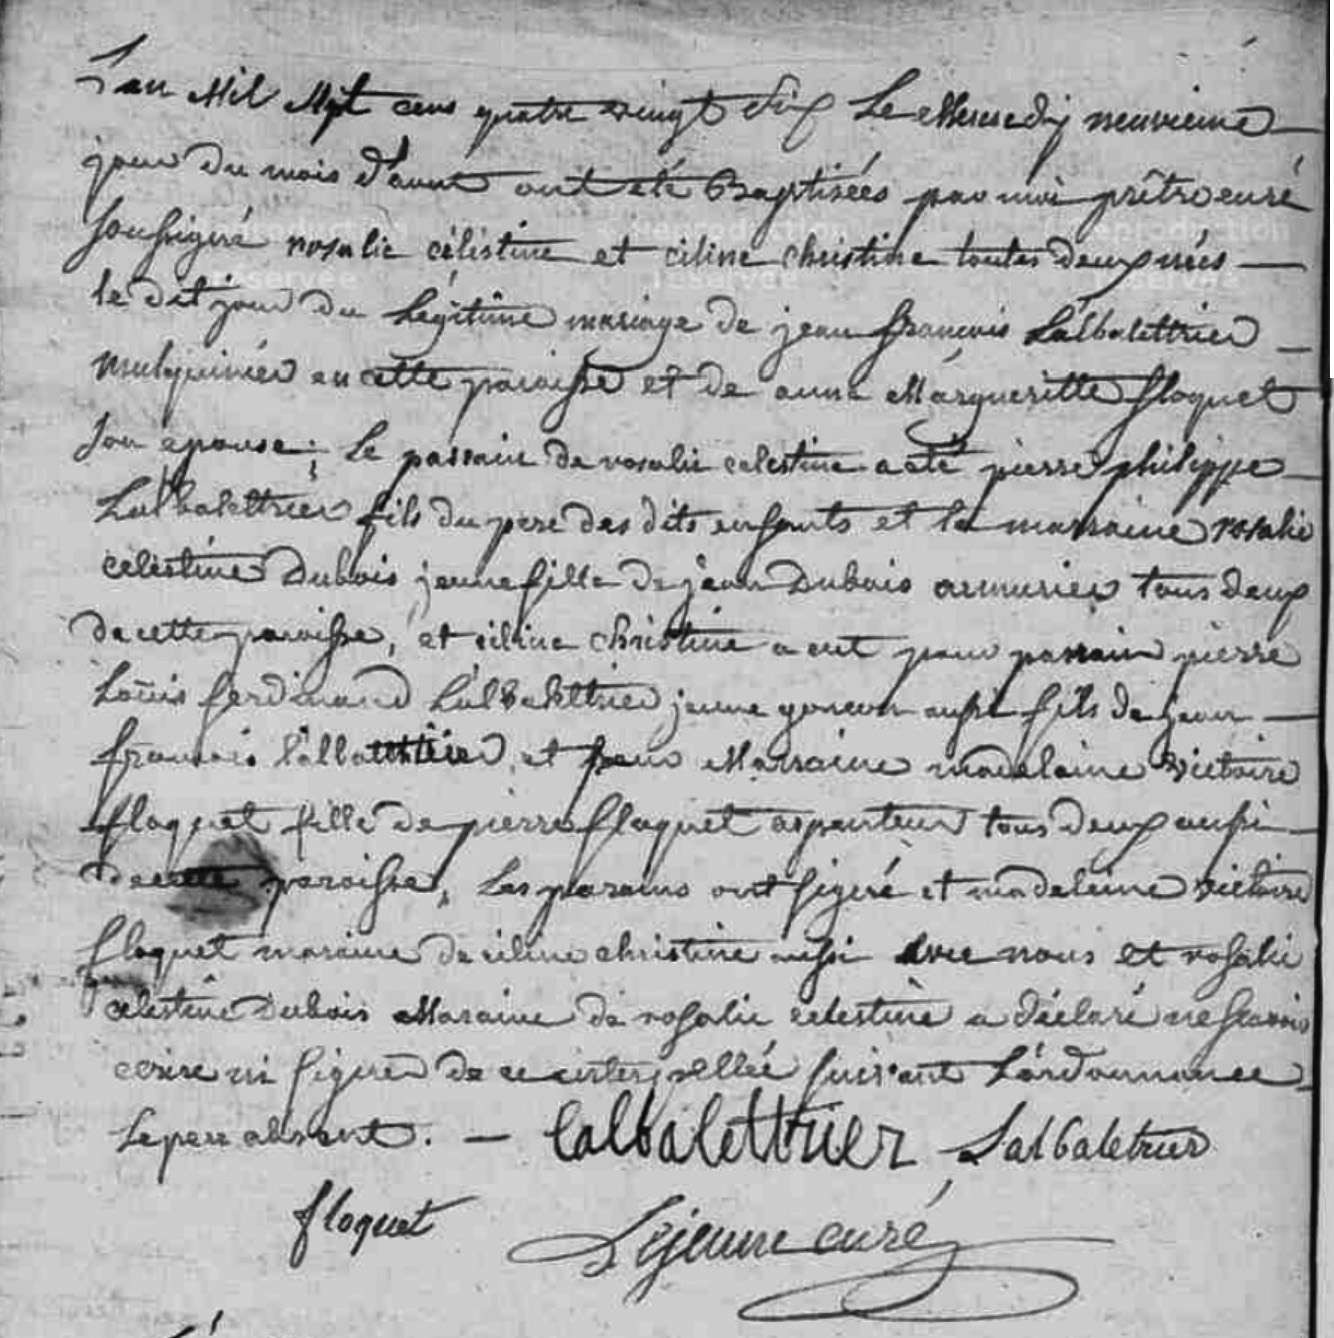 L'an Mil Sept cens quatre vingt dix Le Mercredy neuvieme
jour du mois d' ont eté Baptisées par moi prêtre curé
soussigné rosalie céléstine et céline christine toutes deux nées
le dit jour du Légitime mariage de jean francois Lálbalettrier
mulquinier en cette paroisse et de anne Márgueritte floquet
son epouse; Le parrain de rosalie celestine a eté pierre philippe
Lalbalettrier fils du pere des dits enfants et la marraine rosalie
celestine Dubois jeune fille de jean Dubois armurier tous deux
de cette paroisse, et céline christine a eut pour parrain pierre
Loüis ferdinand Lalbalettrier jeune garcon aussi fils de jean
francois lálbalettrier, et pour Marraine madelaine victoire
floquet fille de pierre floquet arpenteur tous deux aussi
de cette paroisse, Les parains ont signé et madeleine victoire
floquet maraine de céline christine aussi avec nous et rosalie
celestine Dubois Maraine de rosalie celestine a déclaré ne scavoir
ecrire ni signer de ce interpellée suivant L'ordonnance
Le pere absent. — lalbalettrier Lalbaletrier
floquet Lejeune curé